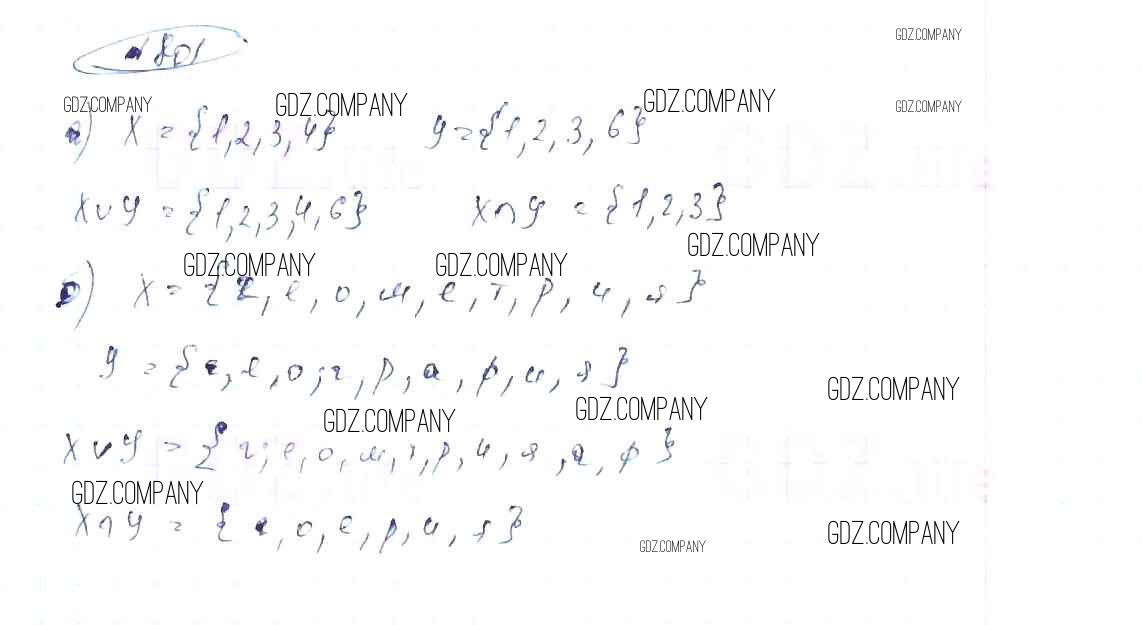 № 801
GDZ.COMPANY
GDZ.COMPANY GDZ.COMPANY GDZ.COMPANY GDZ.COMPANY
а) X = {1,2,3,4} У = {1,2,3,6}
X∪У = {1,2,3,4,6} X∩У = {1,2,3}
GDZ.COMPANY
GDZ.COMPANY GDZ.COMPANY
б) X = {г, е, о, м, е, т, р, и, я}
У = {г, е, о, г, р, а, ф, и, я}
GDZ.COMPANY
GDZ.COMPANY GDZ.COMPANY
X∪У = {г, е, о, м, т, р, и, я, а, ф}
GDZ.COMPANY
X∩У = {г, о, е, р, и, я}
GDZ.COMPANY
GDZ.COMPANY